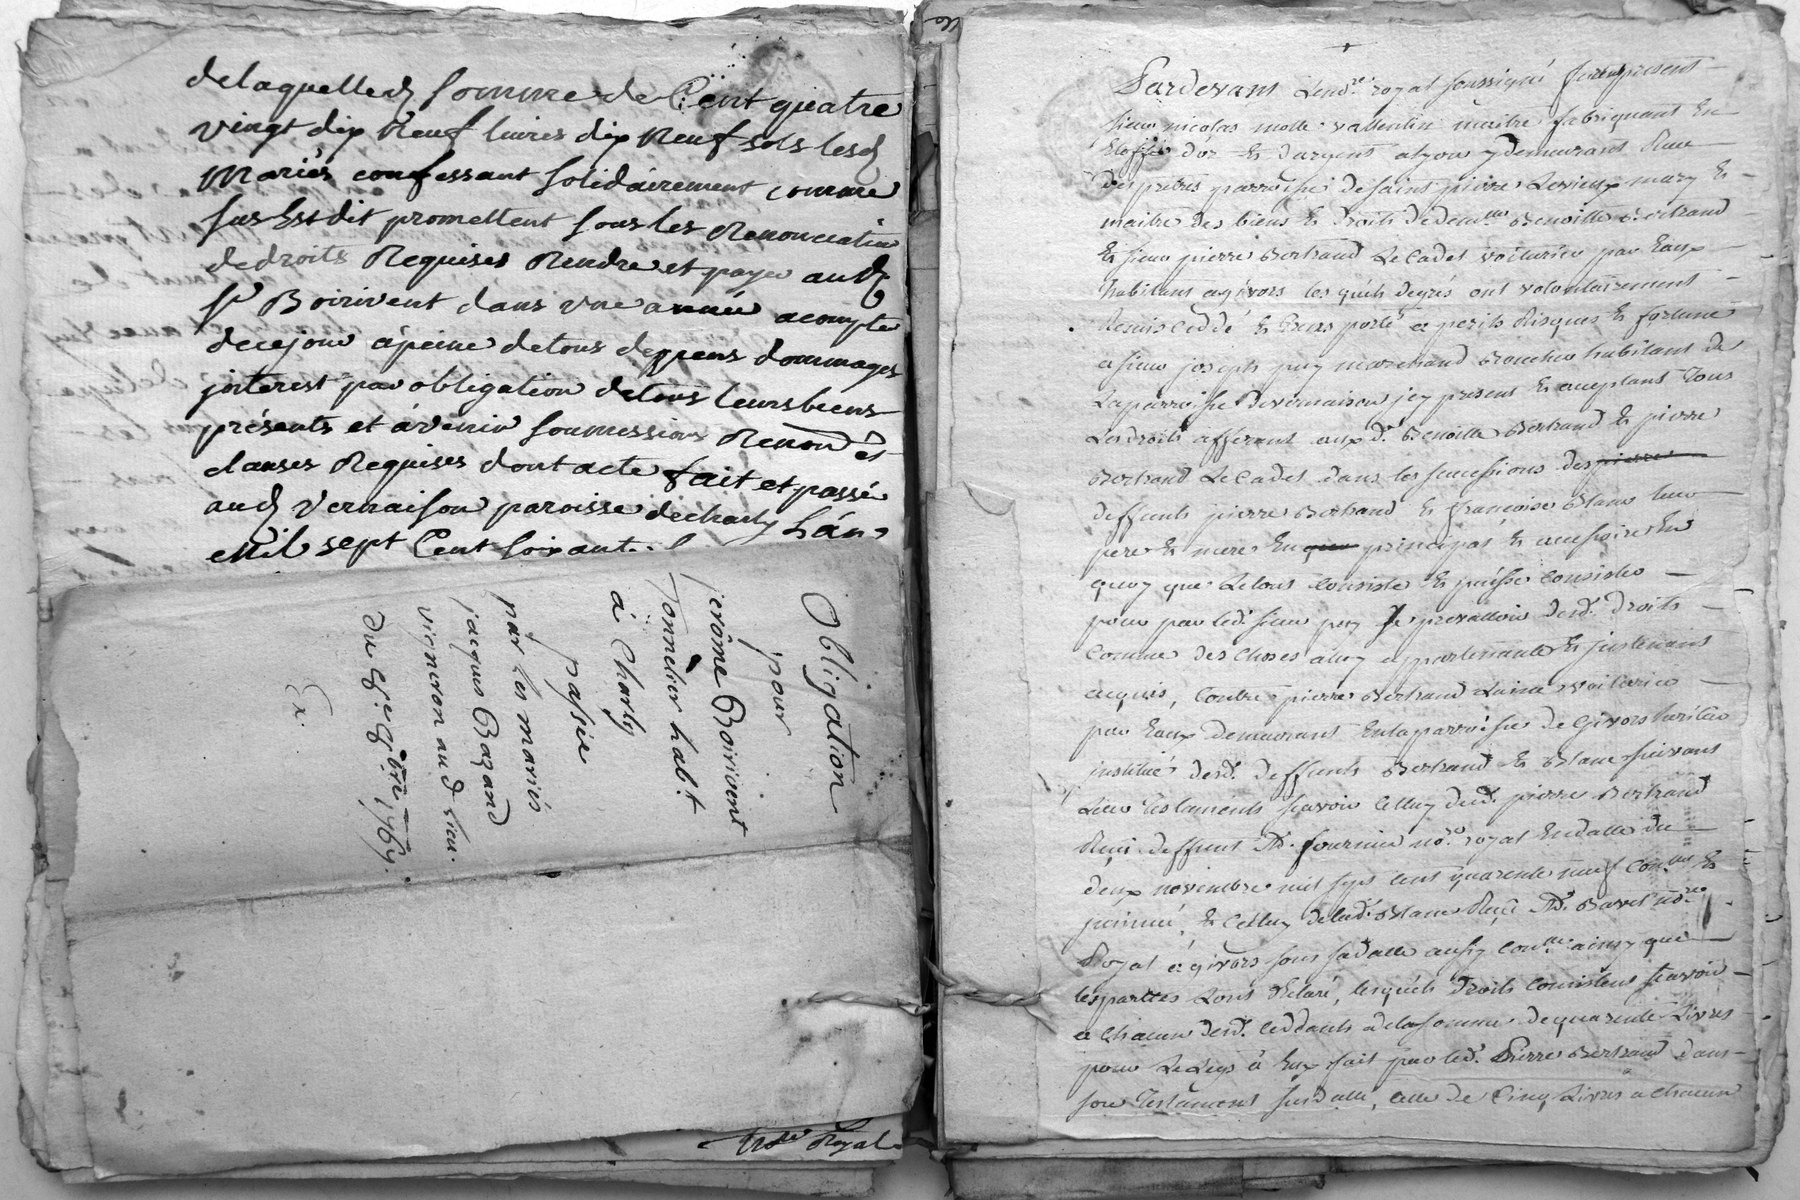 delaquelled somme de Cent quatre
vingt dix Neuf livres dix Neuf sols lesd
Mariés confessant solidairement comme
sus Est dit promettent sous les Renonciation
de droits Requises Rendre et payer aud
Sr Boirivent dans une année acompter
decejour apeine detous deppens dommages
interest par obligation detous leursbiens
présents et àvenir soumessions Renond et
clauses Requises dont acte fait et passé
aud Vernaison paroisse decharly Lán
Mil sept Cent soixant
Obligation
pour
jerôme Boirivent
Tonnelier habit
à Charly
passée
par les mariés
jacques Bazand
vigneron aud lieu.
Du 1769.
Nore Royal
Pardevant Lenore royal soussigné furent present
sieur nicolas molle vallentin maitre fabriquant En
Etoffes d'or Et d'argent alyon y demeurant Rue
des pretres parroisse de saint pierre Levieux mary Et
maitre des biens Et droits de demlle Benoitte Bertrand
Et sieur pierre Bertrand Le Cadet voiturier par Eaux
habitant agivors lesquels degrés ont volontairement
Remis Ceddé Et transporté a perils Risques Et fortune
a sieur joseph puy marchand habitant de
La parroisse devernaison jcy present Et acceptant Tous
Les droits afférant auxd. Benoitte Bertrand Et pierre
Bertrand Le Cadet dans les successions des pierre
deffunts pierre Bertrand Et françoise Blanc leur
pere Et mere En que principal Et accessoires En
quoy que Le tout Consiste Et puisse Consister
pour par led. sieur puy se prevalloir desd. droits
Comme des choses àluy appartenante Et justement
acquis, Contre pierre Bertrand Lainé voiturier
par Eaux demeurant Enla parroisse de Givors heritier
institué desd. deffunts Bertrand Et Blanc suivant
Leur testaments scavoir Celluy dud. pierre Bertrand
Reçu deffunt Me. fournier nore royal Endatte du
deux novembre mil sept cent quarente neuf Et
Et Celluy delad. Blanc Reçu Me. Bavet nore
Royal à givors sous sadatte aussy ainsy que
lesparties Lont declaré, lesquels droits Consistent scavoir
a Chacun desd. Ceddants a la somme de quarente Livres
pour Le Legs à Eux fait par led. Pierre Bertrand dans
son Testament susdatté, celle de Cinq Livres a chacun